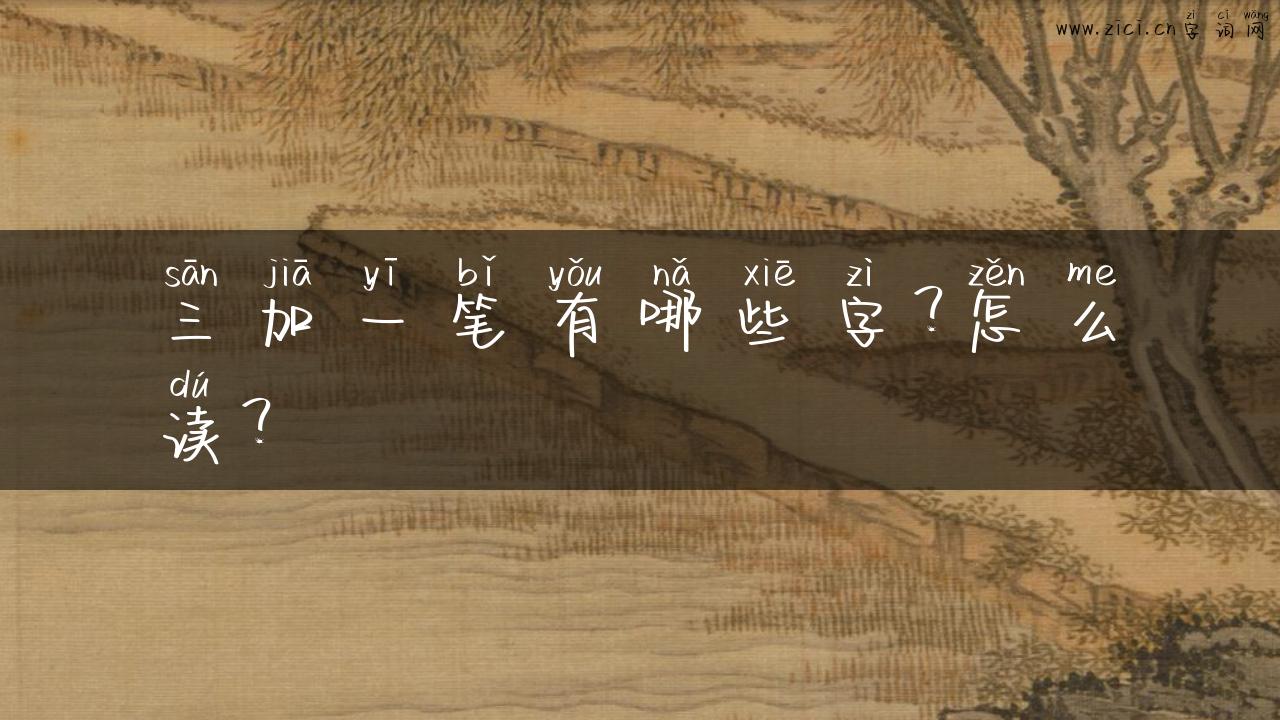 zì cí wǎng
www.zici.cn字词网
sān jiā yī bǐ yǒu nǎ xiē zì zěn me
三加一笔有哪些字?怎么
dú
读?